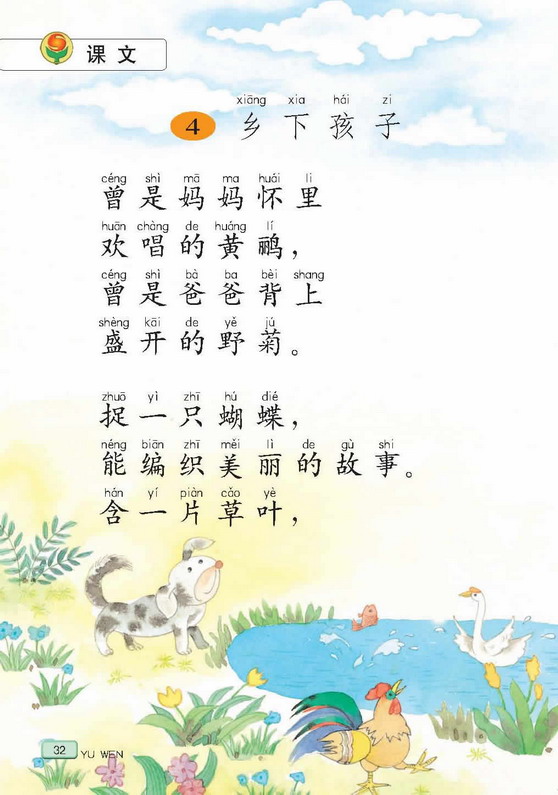 课文
xiāng xia hái zi
4 乡下孩子
céng shì mā ma huái li
曾是妈妈怀里
huān chàng de huáng lí
欢唱的黄鹂，
céng shì bà ba bèi shang
曾是爸爸背上
shèng kāi de yě jú
盛开的野菊。
zhuō yì zhī hú dié
捉一只蝴蝶，
néng biān zhī měi lì de gù shi
能编织美丽的故事。
hán yí piàn cǎo yè
含一片草叶，
32 YU WEN